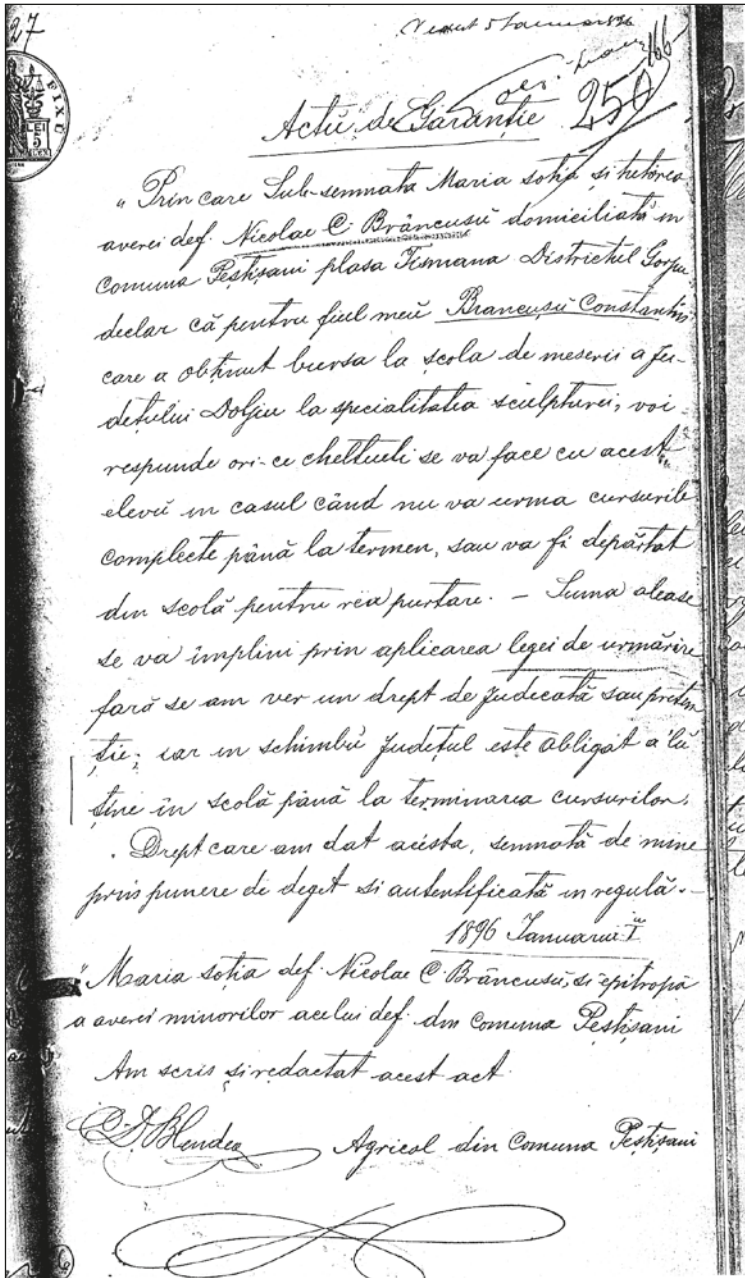 27
5 Ianuar 896
166
250
FIXU
LEI
5
Actŭ de Garanție
„Prin care Sub-semnata Maria soția și tutórea
averei def. Nicolae C. Brâncusŭ domiciliată in
Comuna Pestisani plasa Tismana Districtul Gorjiu
declar că pentru fiul meŭ Brancușŭ Constantin
care a obținut bursa la școla de meserii a Ju-
dețului Doljiu la specialitatea sculpturei, voi
respunde ori-ce cheltueli se va face cu acest
elevŭ in casul când nu va urma cursurile
complecte până la termen, sau va fi depărtat
din scolă pentru rea purtare. – Suma alease
se va împlini prin aplicarea legei de urmărire
fară se am ver un drept de Judecată sau preten
ție; iar in schimbŭ Județul este obligat a'lŭ
ține în scolă până la terminarea cursurilor.
Drept care am dat acésta, semnată de mine
prin punere de deget si autentificată in regulă. –
1896 Ianuarie I
„Maria soția def. Nicolae C. Brâncusŭ, si epitropa
a averei minorilor acelui def. din Comuna Pestisani
Am scris și redactat acest act
C. D. Blendea Agricol din Comuna Peștișani